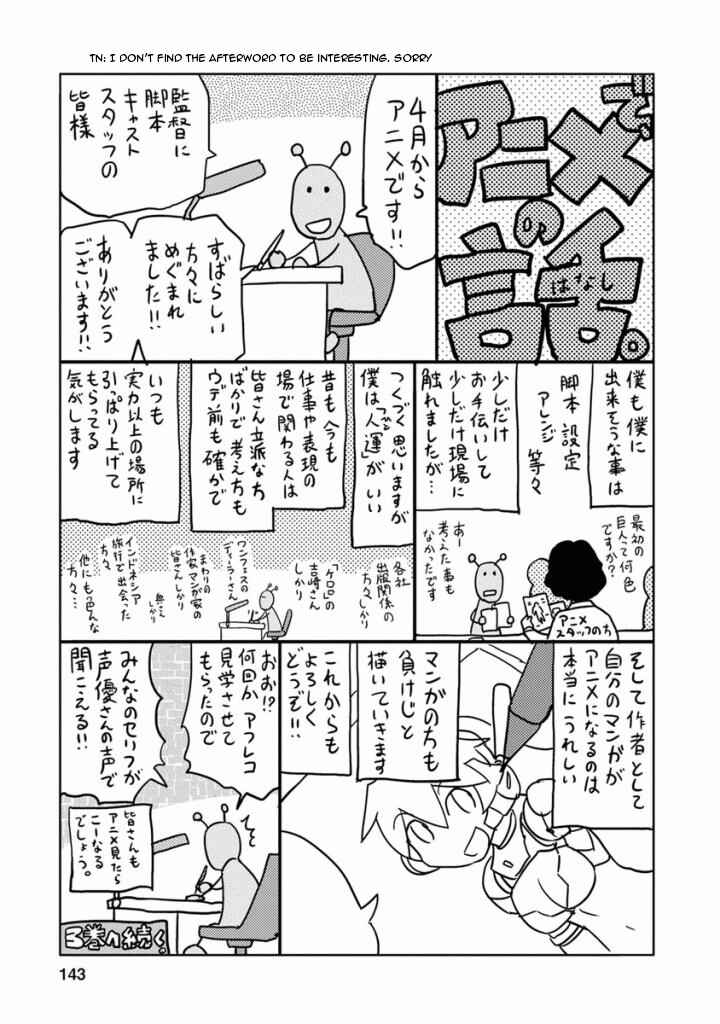 TN: I DON'T FIND THE AFTERWORD TO BE INTERESTING. SORRY
で、
アニメ
の
話。
はなし
4月から
アニメです!!
監督に
脚本
キャスト
スタッフの
皆様
すばらしい
方々に
めぐまれ
ました!!
ありがとう
ございます!!
僕も僕に
出来そうな事は
脚本 設定
アレンジ
等々
少しだけ
お手伝いして
少しだけ現場に
触れましたが…
最初の
巨人って何色
ですか?
あー
考えた事も
なかったです
アニメ
スタッフの方
つくづく思いますが
僕は「人運」がいい
昔も今も
仕事や表現の
場で関わる人は
皆さん立派な方
ばかりで考え方も
ウデ前も確かで
いつも
実力以上の場所に
引っぱり上げて
もらってる
気がします
各社
出版関係の
方々しかり
「ケロロ」の
吉崎さん
しかり
ワンフェスの
ディーラーさん
まわりの
作家マンが家の
皆さんしかり
しかり
インドネシア
旅行で出会った
方々
他にも色んな
方々…
そして作者として
自分のマンガが
アニメになるのは
本当にうれしい
マンガの方も
負けじと
描いていきます
これからも
よろしく
どうぞ!!
おお!?
何回かアフレコ
見学させて
もらったので
みんなのセリフが
声優さんの声で
聞こえる!!
皆さんも
アニメ見たら
こーなる
でしょう。
3巻へ続く。
143